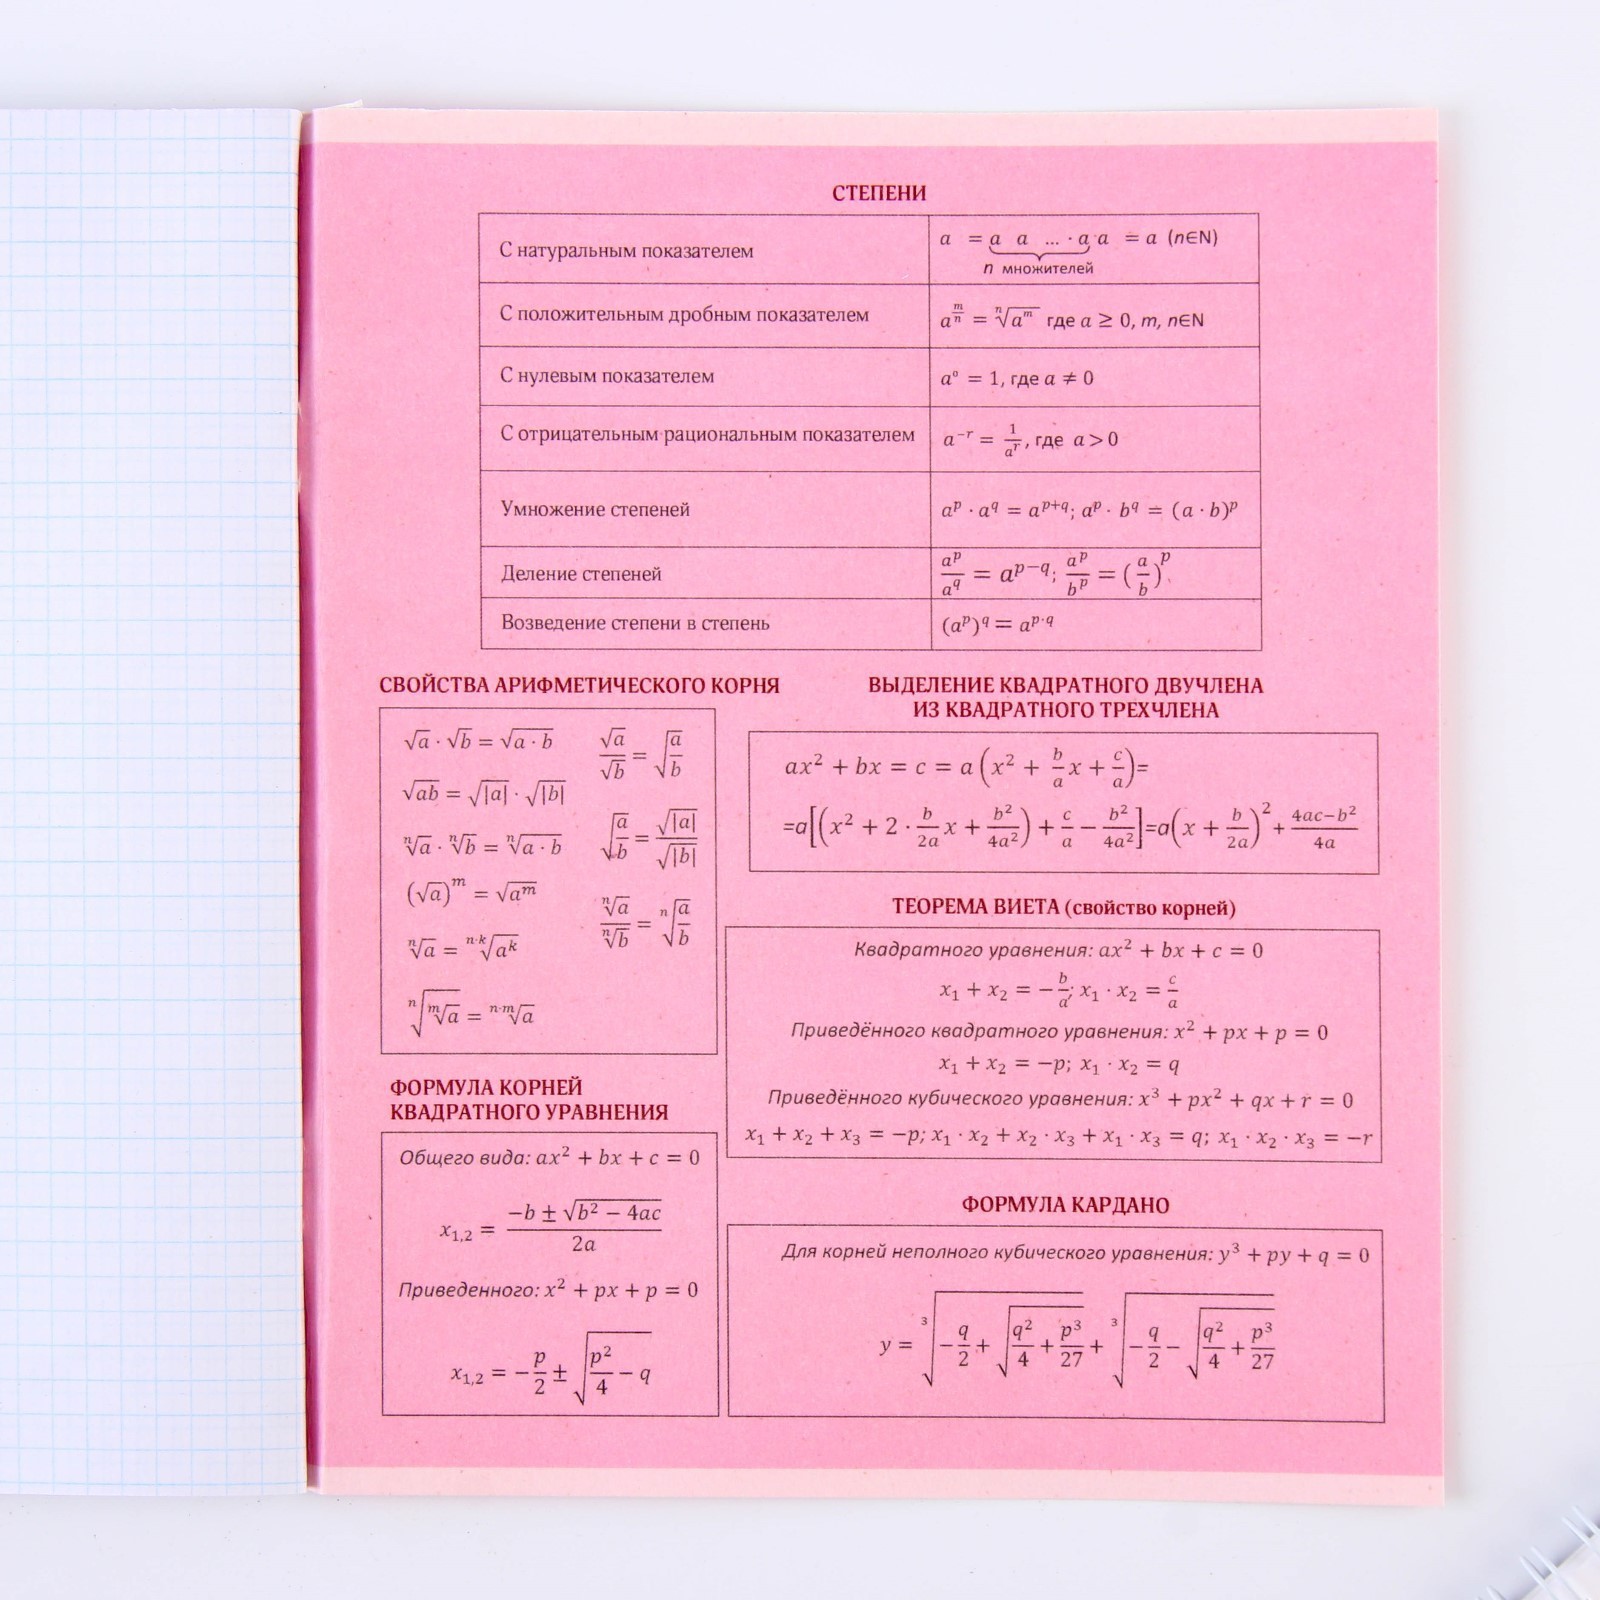 СТЕПЕНИ
С натуральным показателем a = a a ... · a a = a (n∈N)
n множителей
С положительным дробным показателем a^(m/n) = ⁿ√(a^m) где a ≥ 0, m, n∈N
С нулевым показателем a° = 1, где a ≠ 0
С отрицательным рациональным показателем a^(−r) = 1/a^r, где a > 0
Умножение степеней a^p · a^q = a^(p+q); a^p · b^q = (a · b)^p
Деление степеней a^p/a^q = a^(p−q); a^p/b^p = (a/b)^p
Возведение степени в степень (a^p)^q = a^(p·q)
СВОЙСТВА АРИФМЕТИЧЕСКОГО КОРНЯ
√a · √b = √(a · b)
√a/√b = √(a/b)
√(ab) = √|a| · √|b|
√(a/b) = √|a|/√|b|
ⁿ√a · ⁿ√b = ⁿ√(a · b)
(√a)^m = √(a^m)
ⁿ√a/ⁿ√b = ⁿ√(a/b)
ⁿ√a = ^(n·k)√(a^k)
ⁿ√(^m√a) = ^(n·m)√a
ВЫДЕЛЕНИЕ КВАДРАТНОГО ДВУЧЛЕНА
ИЗ КВАДРАТНОГО ТРЕХЧЛЕНА
ax² + bx = c = a(x² + b/a x + c/a)=
=a[(x² + 2 · b/2a x + b²/4a²) + c/a − b²/4a²]=a(x + b/2a)² + (4ac−b²)/4a
ТЕОРЕМА ВИЕТА (свойство корней)
Квадратного уравнения: ax² + bx + c = 0
x₁ + x₂ = −b/a; x₁ · x₂ = c/a
Приведённого квадратного уравнения: x² + px + p = 0
x₁ + x₂ = −p; x₁ · x₂ = q
Приведённого кубического уравнения: x³ + px² + qx + r = 0
x₁ + x₂ + x₃ = −p; x₁ · x₂ + x₂ · x₃ + x₁ · x₃ = q; x₁ · x₂ · x₃ = −r
ФОРМУЛА КОРНЕЙ
КВАДРАТНОГО УРАВНЕНИЯ
Общего вида: ax² + bx + c = 0
x₁,₂ = (−b ± √(b² − 4ac))/2a
Приведенного: x² + px + p = 0
x₁,₂ = −p/2 ± √(p²/4 − q)
ФОРМУЛА КАРДАНО
Для корней неполного кубического уравнения: y³ + py + q = 0
y = ³√(−q/2 + √(q²/4 + p³/27)) + ³√(−q/2 − √(q²/4 + p³/27))